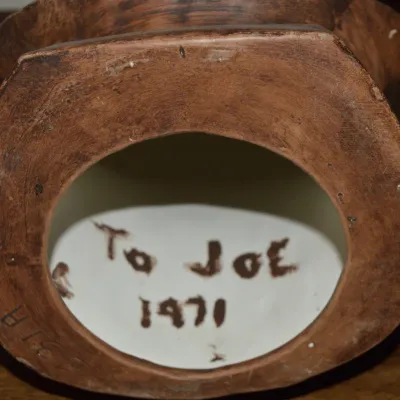 To JOE
1971